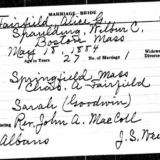 MARRIAGE - BRIDE
Fairfield, Alice G.
Spaulding, Wilbur C.
Boston Mass
May 18, 1884
27 No. of Marriage 1
Widowed
Divorced
Springfield Mass
Chas. A. Fairfield
Sarah (Goodwin)
Rev. John A. MacColl
Albans J.S. Wee